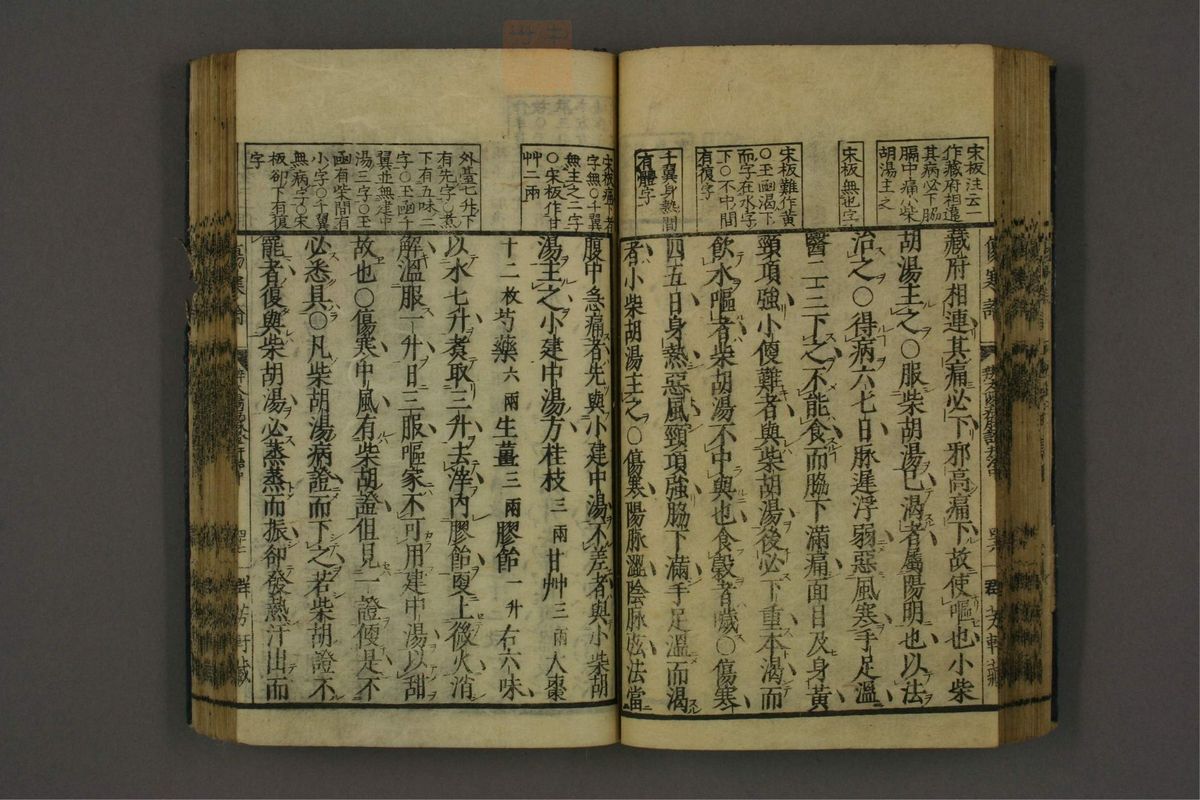 宋板注云一
作藏府相連
其病必下脇
膈中痛八柴
胡湯主之
宋板無也字
宋板難作黃
○玉函渴下
而字在水字
下○不中間
有復字
千翼身熱間
有體字
藏府相連其痛必下邪高痛下故使嘔也小柴
胡湯主之○服柴胡湯已渴者屬陽明也以法
治之○得病六七日脉遲浮弱惡風寒手足溫
醫二三下之不能食而脇下滿痛面目及身黃
頸項強小便難者與柴胡湯後必下重本渴而
飲水嘔者柴胡湯不中與也食穀者噦○傷寒
四五日身熱惡風頸項強脇下滿手足溫而渴
者小柴胡湯主之○傷寒陽脉澀陰脉弦法當
傷寒論
群芳軒藏
宋板痛下者
字無○千翼
無主之二字
○宋板作甘
艸二兩
外臺七升下
有先字○煮
下有五味二
字○玉函千
翼並無建中
湯三字○玉
函有柴間有
小字○千翼
無病字○宋
板卻下有復
字
腹中急痛者先與小建中湯不差者與小柴胡
湯主之小建中湯方桂枝三兩甘艸三兩大棗
十二枚芍藥六兩生薑三兩膠飴一升右六味
以水七升煮取三升去滓內膠飴更上微火消
解溫服一升日三服嘔家不可用建中湯以甜
故也○傷寒中風有柴胡證但見一證便是不
必悉具○凡柴胡湯病證而下之若柴胡證不
罷者復與柴胡湯必蒸蒸而振卻發熱汗出而
群芳軒藏